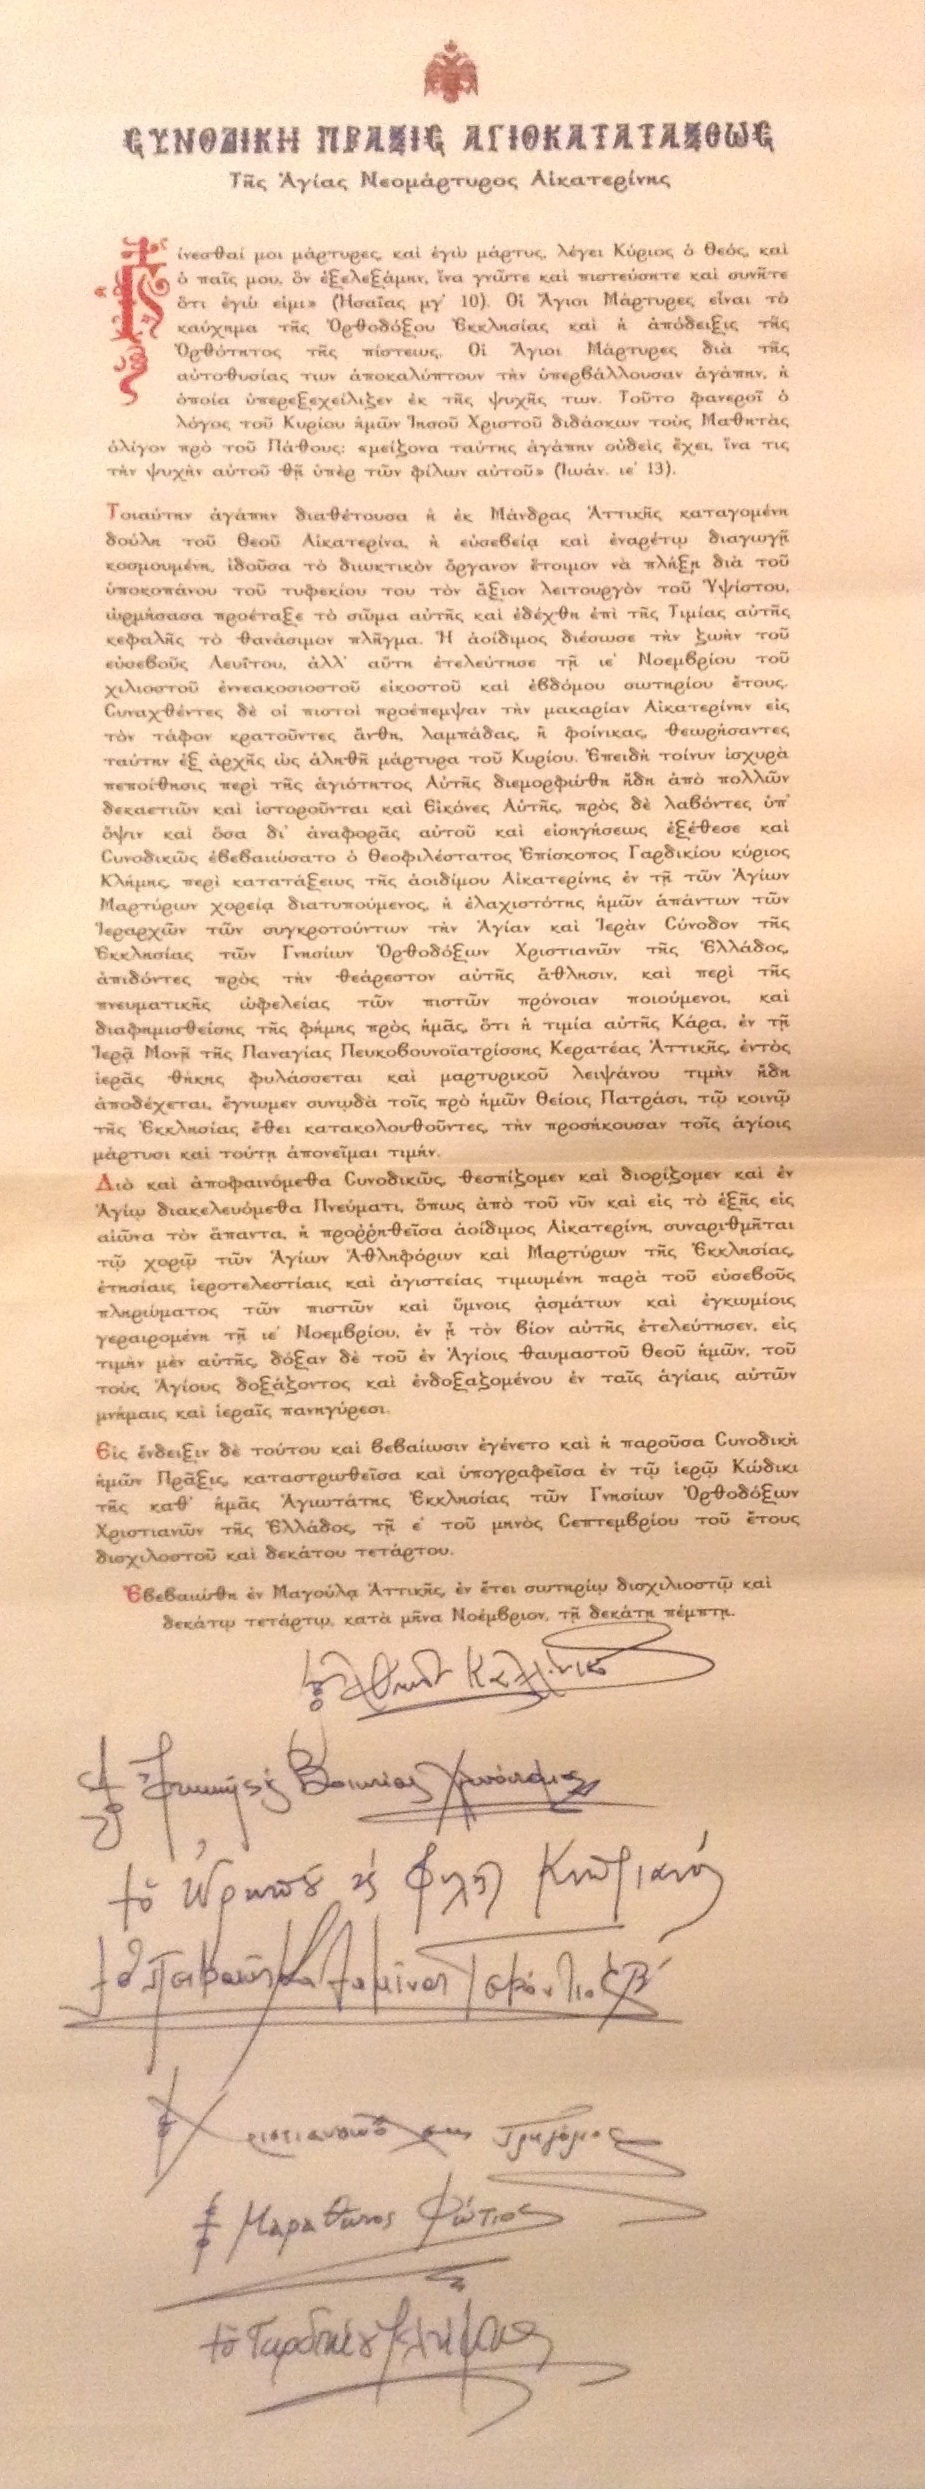 ΣΥΝΟΔΙΚΗ ΠΡΑΞΙΣ ΑΓΙΟΚΑΤΑΤΑΞΕΩΣ
Τῆς Ἁγίας Νεομάρτυρος Αἰκατερίνης
Γίνεσθαί μοι μάρτυρες, καὶ ἐγὼ μάρτυς, λέγει Κύριος ὁ Θεός, καὶ
ὁ παῖς μου, ὃν ἐξελεξάμην, ἵνα γνῶτε καὶ πιστεύσητε καὶ συνῆτε
ὅτι ἐγώ εἰμι» (Ἡσαΐας μγ' 10). Οἱ Ἅγιοι Μάρτυρες εἶναι τὸ
καύχημα τῆς Ὀρθοδόξου Ἐκκλησίας καὶ ἡ ἀπόδειξις τῆς
Ὀρθότητος τῆς πίστεως. Οἱ Ἅγιοι Μάρτυρες διὰ τῆς
αὐτοθυσίας των ἀποκαλύπτουν τὴν ὑπερβάλλουσαν ἀγάπην, ἡ
ὁποία ὑπερεξεχείλιζεν ἐκ τῆς ψυχῆς των. Τοῦτο φανεροῖ ὁ
λόγος τοῦ Κυρίου ἡμῶν Ἰησοῦ Χριστοῦ διδάσκων τοὺς Μαθητὰς
ὀλίγον πρὸ τοῦ Πάθους: «μείζονα ταύτης ἀγάπην οὐδεὶς ἔχει, ἵνα τις
τὴν ψυχὴν αὐτοῦ θῇ ὑπὲρ τῶν φίλων αὐτοῦ» (Ἰωάν. ιε' 13).
Τοιαύτην ἀγάπην διαθέτουσα ἡ ἐκ Μάνδρας Ἀττικῆς καταγομένη
δούλη τοῦ Θεοῦ Αἰκατερίνα, ἡ εὐσεβείᾳ καὶ ἐναρέτῳ διαγωγῇ
κοσμουμένη, ἰδοῦσα τὸ διωκτικὸν ὄργανον ἕτοιμον νὰ πλήξῃ διὰ τοῦ
ὑποκοπάνου τοῦ τυφεκίου του τὸν ἄξιον λειτουργὸν τοῦ Ὑψίστου,
ὡρμήσασα προέταξε τὸ σῶμα αὐτῆς καὶ ἐδέχθη ἐπὶ τῆς Τιμίας αὐτῆς
κεφαλῆς τὸ θανάσιμον πλῆγμα. Ἡ ἀοίδιμος διέσωσε τὴν ζωὴν τοῦ
εὐσεβοῦς Λευΐτου, ἀλλ' αὕτη ἐτελεύτησε τῇ ιε' Νοεμβρίου τοῦ
χιλιοστοῦ ἐννεακοσιοστοῦ εἰκοστοῦ καὶ ἑβδόμου σωτηρίου ἔτους.
Συναχθέντες δὲ οἱ πιστοὶ προέπεμψαν τὴν μακαρίαν Αἰκατερίνην εἰς
τὸν τάφον κρατοῦντες ἄνθη, λαμπάδας, ἢ φοίνικας, θεωρήσαντες
ταύτην ἐξ ἀρχῆς ὡς ἀληθῆ μάρτυρα τοῦ Κυρίου. Ἐπειδὴ τοίνυν ἰσχυρὰ
πεποίθησις περὶ τῆς ἁγιότητος Αὐτῆς διεμορφώθη ἤδη ἀπὸ πολλῶν
δεκαετιῶν καὶ ἱστοροῦνται καὶ Εἰκόνες Αὐτῆς, πρὸς δὲ λαβόντες ὑπ'
ὄψιν καὶ ὅσα δι' ἀναφορᾶς αὐτοῦ καὶ εἰσηγήσεως ἐξέθεσε καὶ
Συνοδικῶς ἐβεβαιώσατο ὁ Θεοφιλέστατος Ἐπίσκοπος Γαρδικίου κύριος
Κλήμης, περὶ κατατάξεως τῆς ἀοιδίμου Αἰκατερίνης ἐν τῇ τῶν Ἁγίων
Μαρτύρων χορείᾳ διατυπούμενος, ἡ ἐλαχιστότης ἡμῶν ἁπάντων τῶν
Ἱεραρχῶν τῶν συγκροτούντων τὴν Ἁγίαν καὶ Ἱερὰν Σύνοδον τῆς
Ἐκκλησίας τῶν Γνησίων Ὀρθοδόξων Χριστιανῶν τῆς Ἑλλάδος,
ἀπιδόντες πρὸς τὴν θεάρεστον αὐτῆς ἄθλησιν, καὶ περὶ τῆς
πνευματικῆς ὠφελείας τῶν πιστῶν πρόνοιαν ποιούμενοι, καὶ
διαφημισθείσης τῆς φήμης πρὸς ἡμᾶς, ὅτι ἡ τιμία αὐτῆς Κάρα, ἐν τῇ
Ἱερᾷ Μονῇ τῆς Παναγίας Πευκοβουνοϊατρίσσης Κερατέας Ἀττικῆς, ἐντὸς
ἱερᾶς θήκης φυλάσσεται καὶ μαρτυρικοῦ λειψάνου τιμὴν ἤδη
ἀποδέχεται, ἔγνωμεν συνῳδὰ τοῖς πρὸ ἡμῶν θείοις Πατράσι, τῷ κοινῷ
τῆς Ἐκκλησίας ἔθει κατακολουθοῦντες, τὴν προσήκουσαν τοῖς ἁγίοις
μάρτυσι καὶ τούτῃ ἀπονεῖμαι τιμήν.
Διὸ καὶ ἀποφαινόμεθα Συνοδικῶς, θεσπίζομεν καὶ διορίζομεν καὶ ἐν
Ἁγίῳ διακελευόμεθα Πνεύματι, ὅπως ἀπὸ τοῦ νῦν καὶ εἰς τὸ ἑξῆς εἰς
αἰῶνα τὸν ἅπαντα, ἡ προῤῥηθεῖσα ἀοίδιμος Αἰκατερίνη, συναριθμῆται
τῷ χορῷ τῶν Ἁγίων Ἀθληφόρων καὶ Μαρτύρων τῆς Ἐκκλησίας,
ἐτησίαις ἱεροτελεστίαις καὶ ἁγιστείας τιμωμένη παρὰ τοῦ εὐσεβοῦς
πληρώματος τῶν πιστῶν καὶ ὕμνοις ᾀσμάτων καὶ ἐγκωμίοις
γεραιρομένη τῇ ιε' Νοεμβρίου, ἐν ᾗ τὸν βίον αὐτῆς ἐτελεύτησεν, εἰς
τιμὴν μὲν αὐτῆς, δόξαν δὲ τοῦ ἐν Ἁγίοις θαυμαστοῦ Θεοῦ ἡμῶν, τοῦ
τοὺς Ἁγίους δοξάζοντος καὶ ἐνδοξαζομένου ἐν ταῖς ἁγίαις αὐτῶν
μνήμαις καὶ ἱεραῖς πανηγύρεσι.
Εἰς ἔνδειξιν δὲ τούτου καὶ βεβαίωσιν ἐγένετο καὶ ἡ παροῦσα Συνοδικὴ
ἡμῶν Πρᾶξις, καταστρωθεῖσα καὶ ὑπογραφεῖσα ἐν τῷ ἱερῷ Κώδικι
τῆς καθ' ἡμᾶς Ἁγιωτάτης Ἐκκλησίας τῶν Γνησίων Ὀρθοδόξων
Χριστιανῶν τῆς Ἑλλάδος, τῇ ε' τοῦ μηνὸς Σεπτεμβρίου τοῦ ἔτους
δισχιλοστοῦ καὶ δεκάτου τετάρτου.
Ἐβεβαιώθη ἐν Μαγούλᾳ Ἀττικῆς, ἐν ἔτει σωτηρίῳ δισχιλιοστῷ καὶ
δεκάτῳ τετάρτῳ, κατὰ μῆνα Νοέμβριον, τῇ δεκάτῃ πέμπτῃ.
Καλλίνικος
Βοιωτίας Χρυσόστομος
†ὁ Ὠρωποῦ καὶ Φυλῆς Κυπριανός
Γρηγόριος
Μαραθῶνος Φώτιος
†ὁ Γαρδικίου Κλήμης